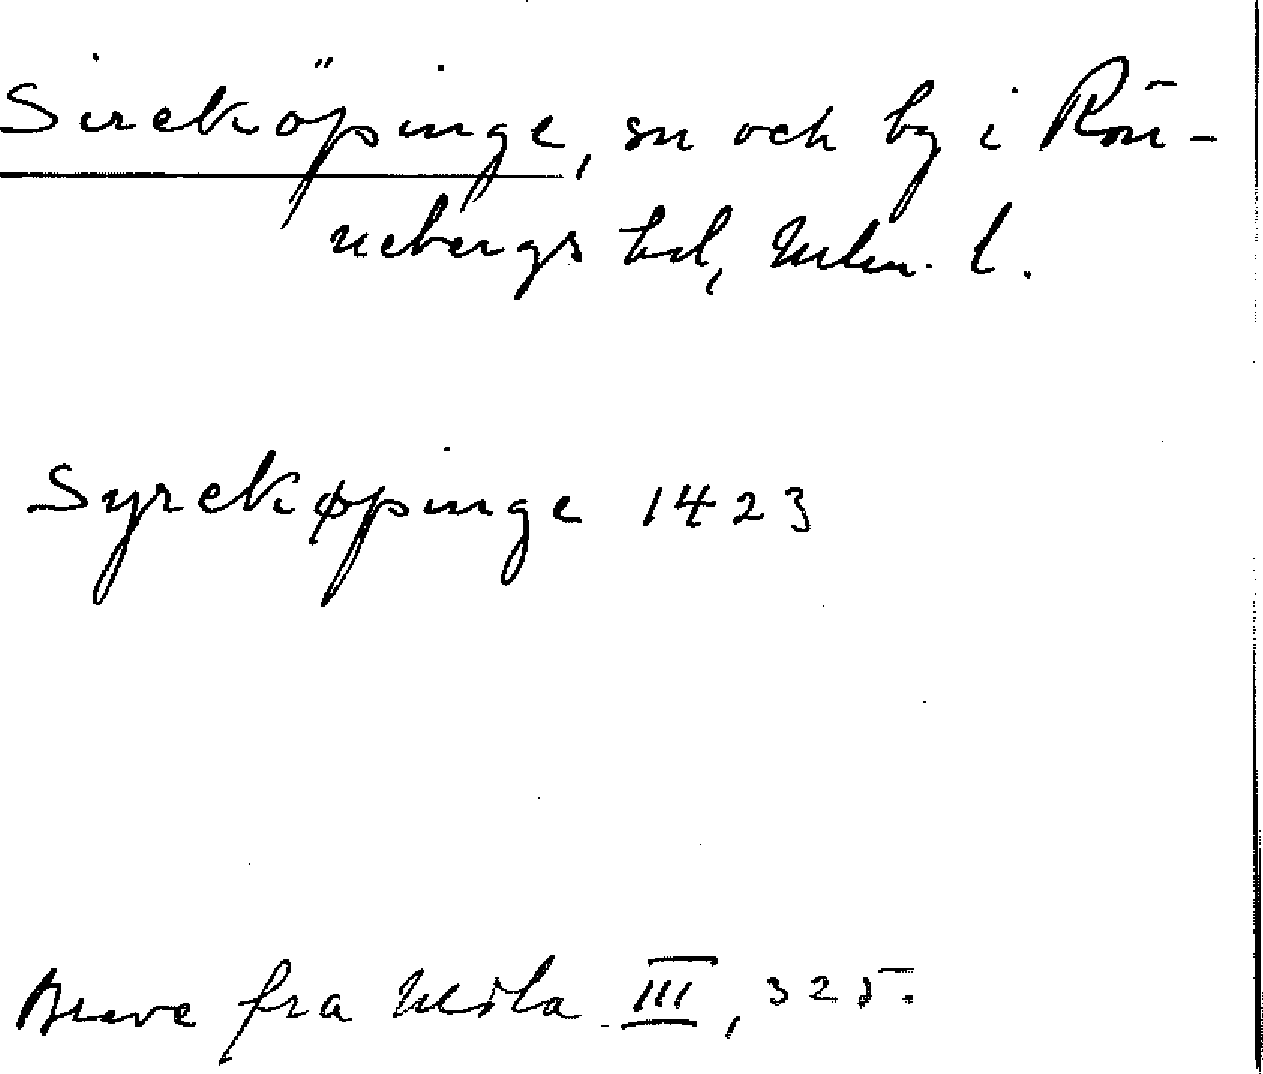 Sireköpinge, sn och by i Rön-
nebergs hd, Mlm. l.
Syrekøpinge 1423
Breve fra III, 325.